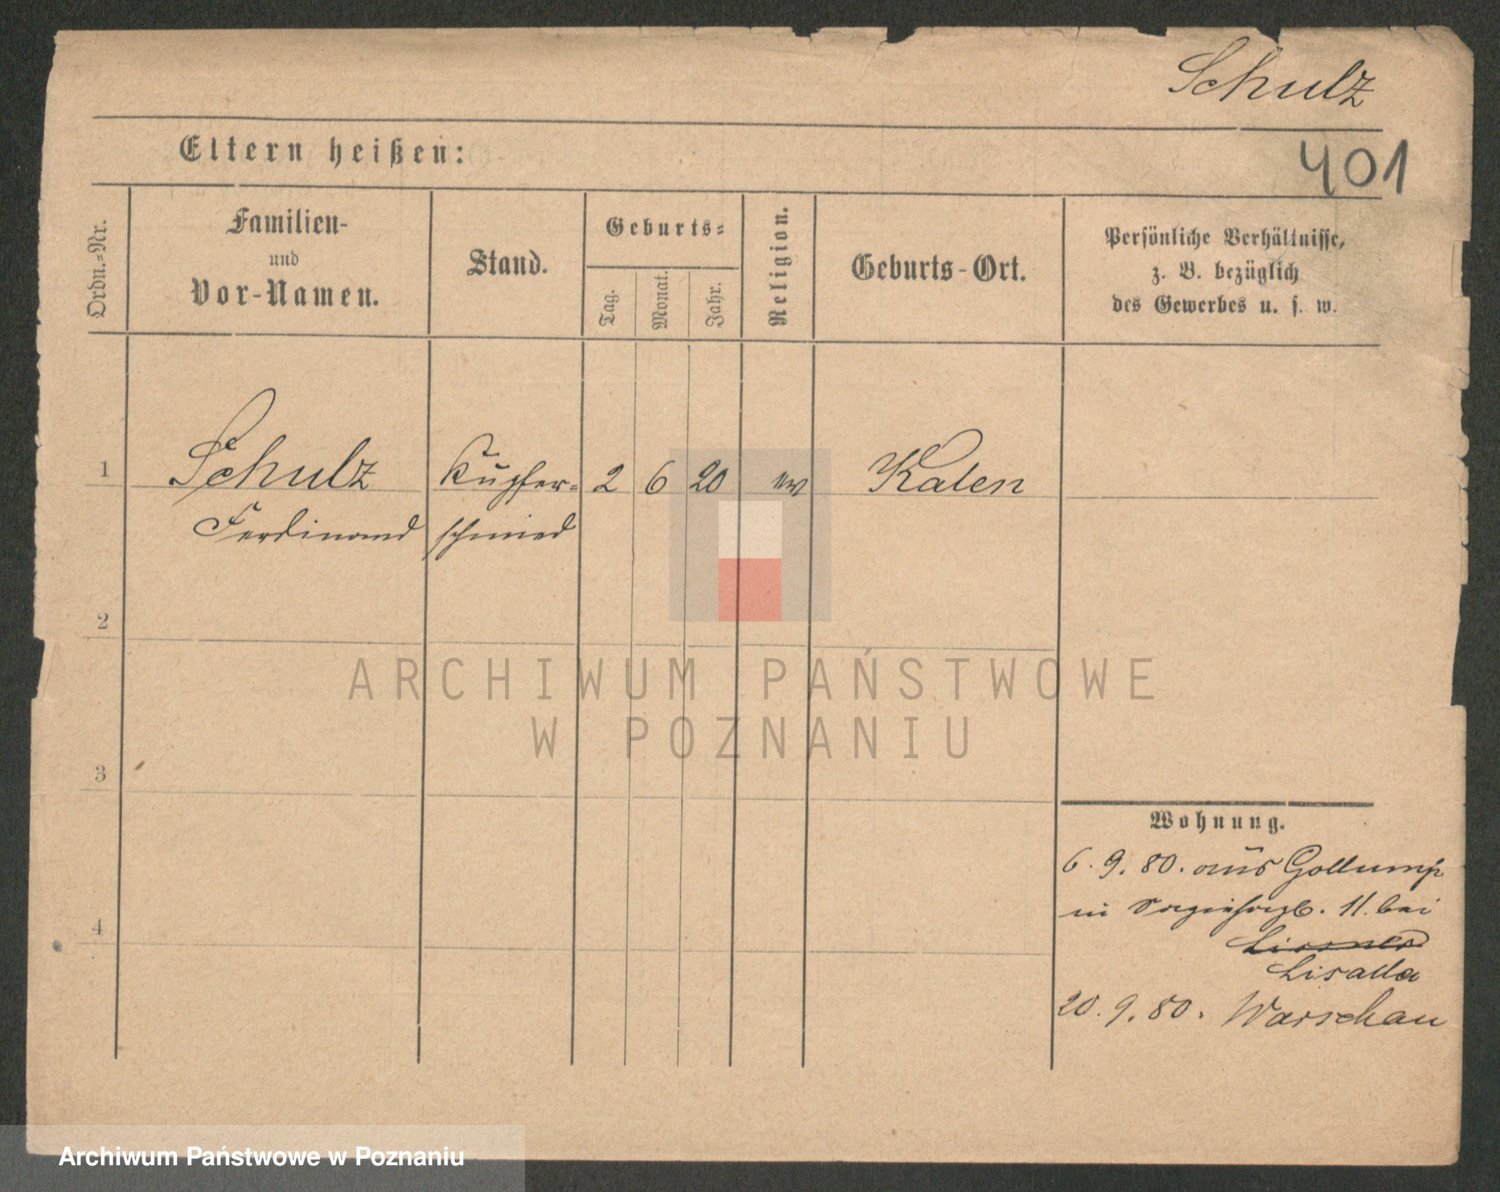 Schulz
401
Eltern heißen:
Ordn.-Nr.
Familien-
und
Vor-Namen.
Stand.
Geburts-
Tag.
Monat.
Jahr.
Religion.
Geburts-Ort.
Persönliche Verhältnisse,
z. B. bezüglich
des Gewerbes u. s. w.
1 Schulz Kupfer- 2 6 20 ev Kalen
Ferdinand schmied
2
3
4
Wohnung.
6. 9. 80. aus
in 11. bei
Lissner
Lisalla
20. 9. 80. Warschau
ARCHIWUM PAŃSTWOWE
W POZNANIU
Archiwum Państwowe w Poznaniu